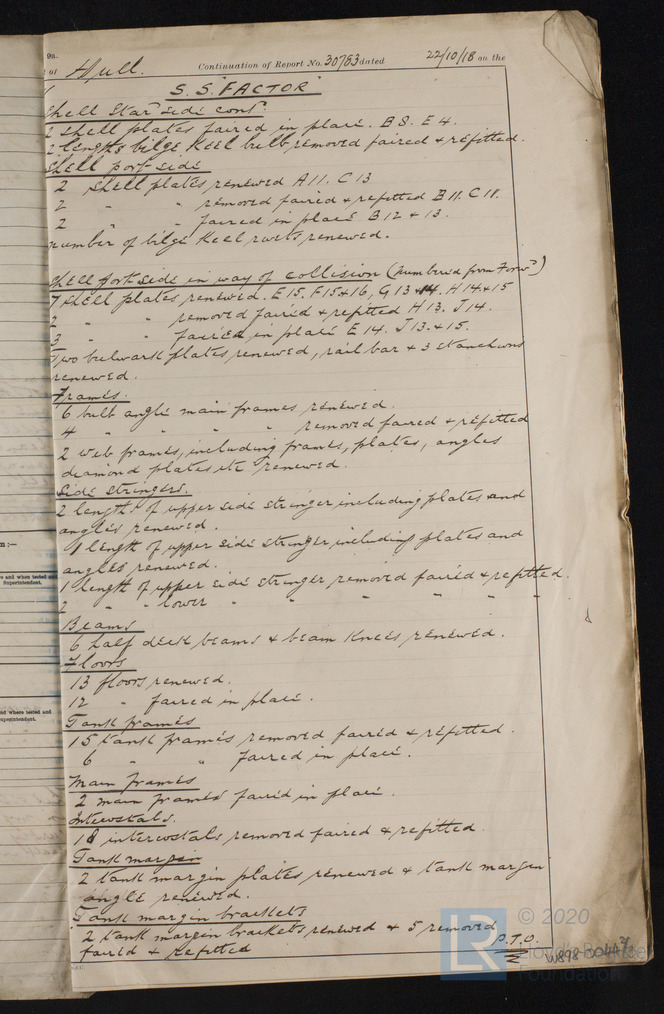 9a.
of Hull. Continuation of Report No. 30753 dated 22/10/18 on the
S.S. "FACTOR"
Shell Starb side contd.
2 shell plates faired in place. B8. E4.
2 lengths bilge keel bulb removed faired & refitted.
Shell port side
2 shell plates renewed A11. C13
2 " " removed faired & refitted B11. C11.
2 " " faired in place B12 & 13.
number of bilge keel rivets renewed.
Shell port side in way of collision (numbered from Forwd)
7 shell plates renewed. E15. F15&16, G13 & 14. H14&15
2 " " removed faired & refitted H13. J14.
3 " " faired in place E14. J13. & 15.
Two bulwark plates renewed, rail bar & 3 stanchions
renewed.
Frames.
6 bulb angle main frames renewed.
4 " " " " removed faired & refitted
2 web frames, including frames, plates, angles
diamond plates etc renewed.
Side Stringers.
2 lengths of upper side stringer including plates and
angles renewed.
1 length of upper side stringer including plates and
angles renewed.
1 length of upper side stringer removed faired & refitted.
2 " " lower " " " " "
Beams
6 half deck beams & beam knees renewed.
Floors
13 floors renewed.
12 " faired in place.
Tank frames
15 tank frames removed faired & refitted.
6 " " faired in place.
Main Frames
2 main frames faired in place.
Intercostals.
18 intercostals removed faired & refitted.
Tank margin
2 tank margin plates renewed & tank margin
angle renewed.
Tank margin brackets
2 tank margin brackets renewed & 5 removed
faired & refitted
P.T.O.
W898-0044 2/2
m :—
e and when tested and
Superintendent.
nd where tested and
uperintendent.
LR © 2020
Lloyd's Register
Foundation